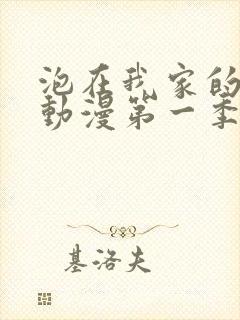 泡在我家的
動漫第一季
基洛夫